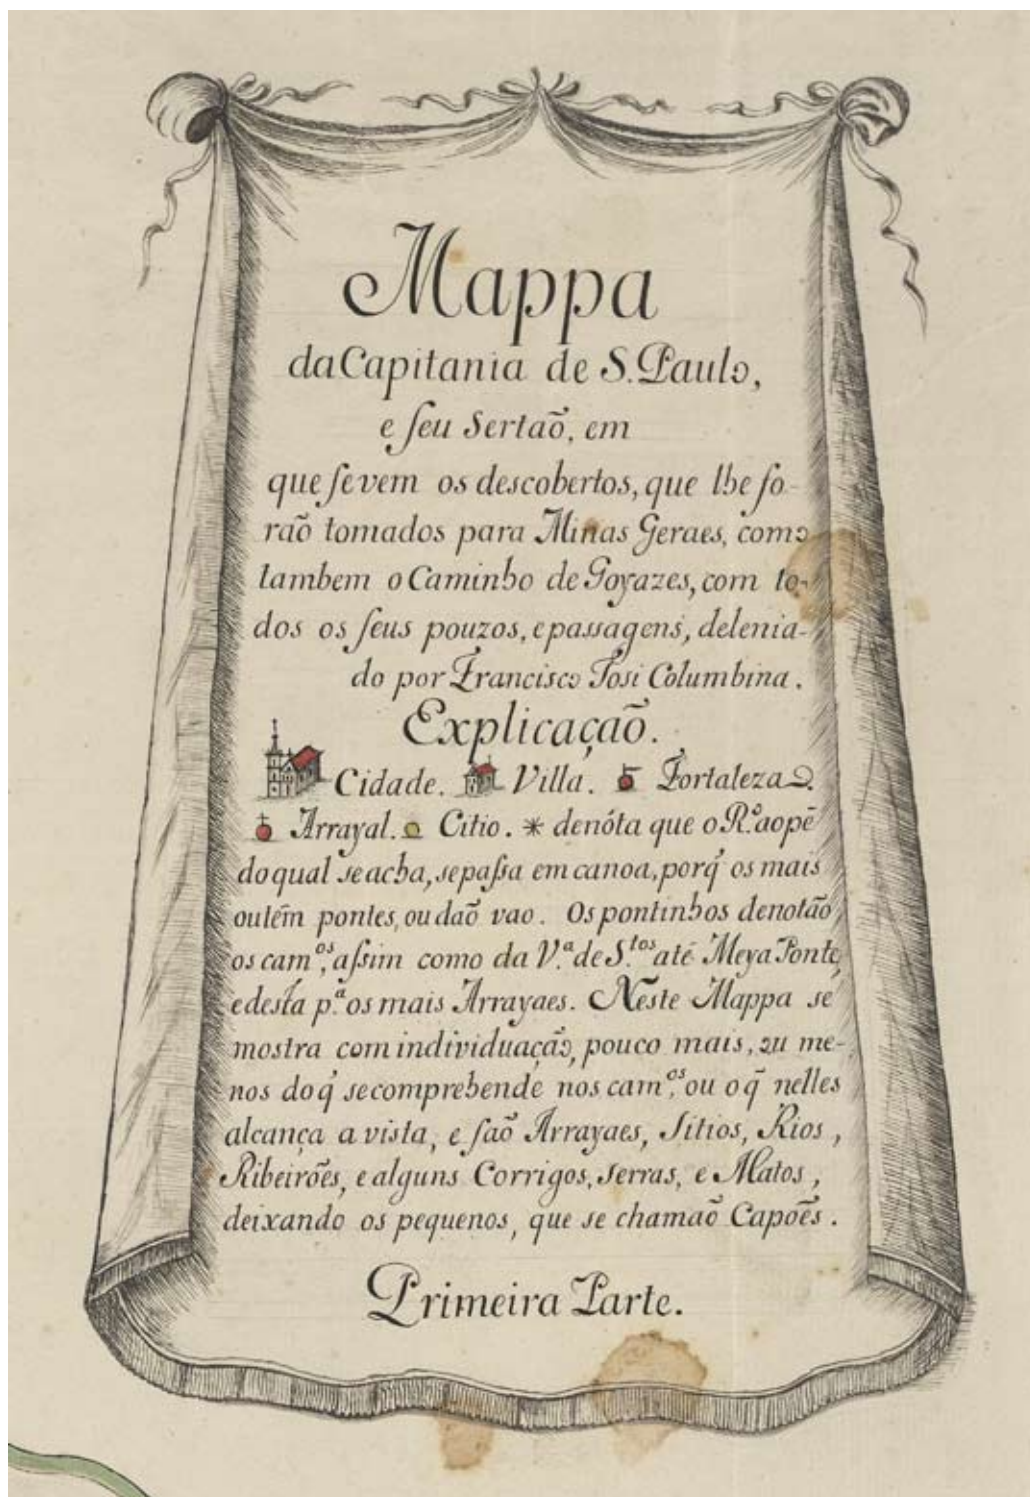 Mappa
da Capitania de S. Paulo,
e seu Sertaõ, em
que se vem os descobertos, que lhe fo-
raõ tomados para Minas Geraes, como
tambem o Caminho de Goyazes, com to-
dos os seus pouzos, e passagens, delenia-
do por Francisco Tosi Columbina.
Explicaçaõ.
Cidade. Villa. Fortaleza.
Arrayal. Citio. * denóta que o R.º ao pē
do qual se acha, se passa em canoa, porq̃ os mais
ou tẽm pontes, ou daõ vao. Os pontinhos denotaõ
os cam.ºˢ, assim como da V.ª de S.ᵗᵒˢ até Meya Ponte,
e desta p.ª os mais Arrayaes. Neste Mappa se
mostra com individuaçaõ, pouco mais, ou me-
nos do q̃ se comprehende nos cam.ºˢ, ou o q̃ nelles
alcança a vista, e saõ Arrayaes, Sitios, Rios,
Ribeirões, e alguns Corrigos, Serras, e Matos,
deixando os pequenos, que se chamaõ Capões.
Primeira Parte.